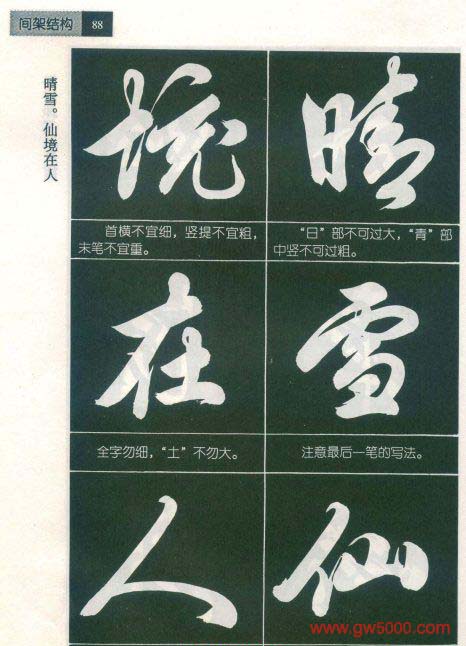 间架结构 88
晴雪。仙境在人
晴
“日”部不可过大，“青”部
中竖不可过粗。
雪
注意最后一笔的写法。
仙
境
首横不宜细，竖提不宜粗，
末笔不宜重。
在
全字勿细，“土”不勿大。
人
www.gw5000.com